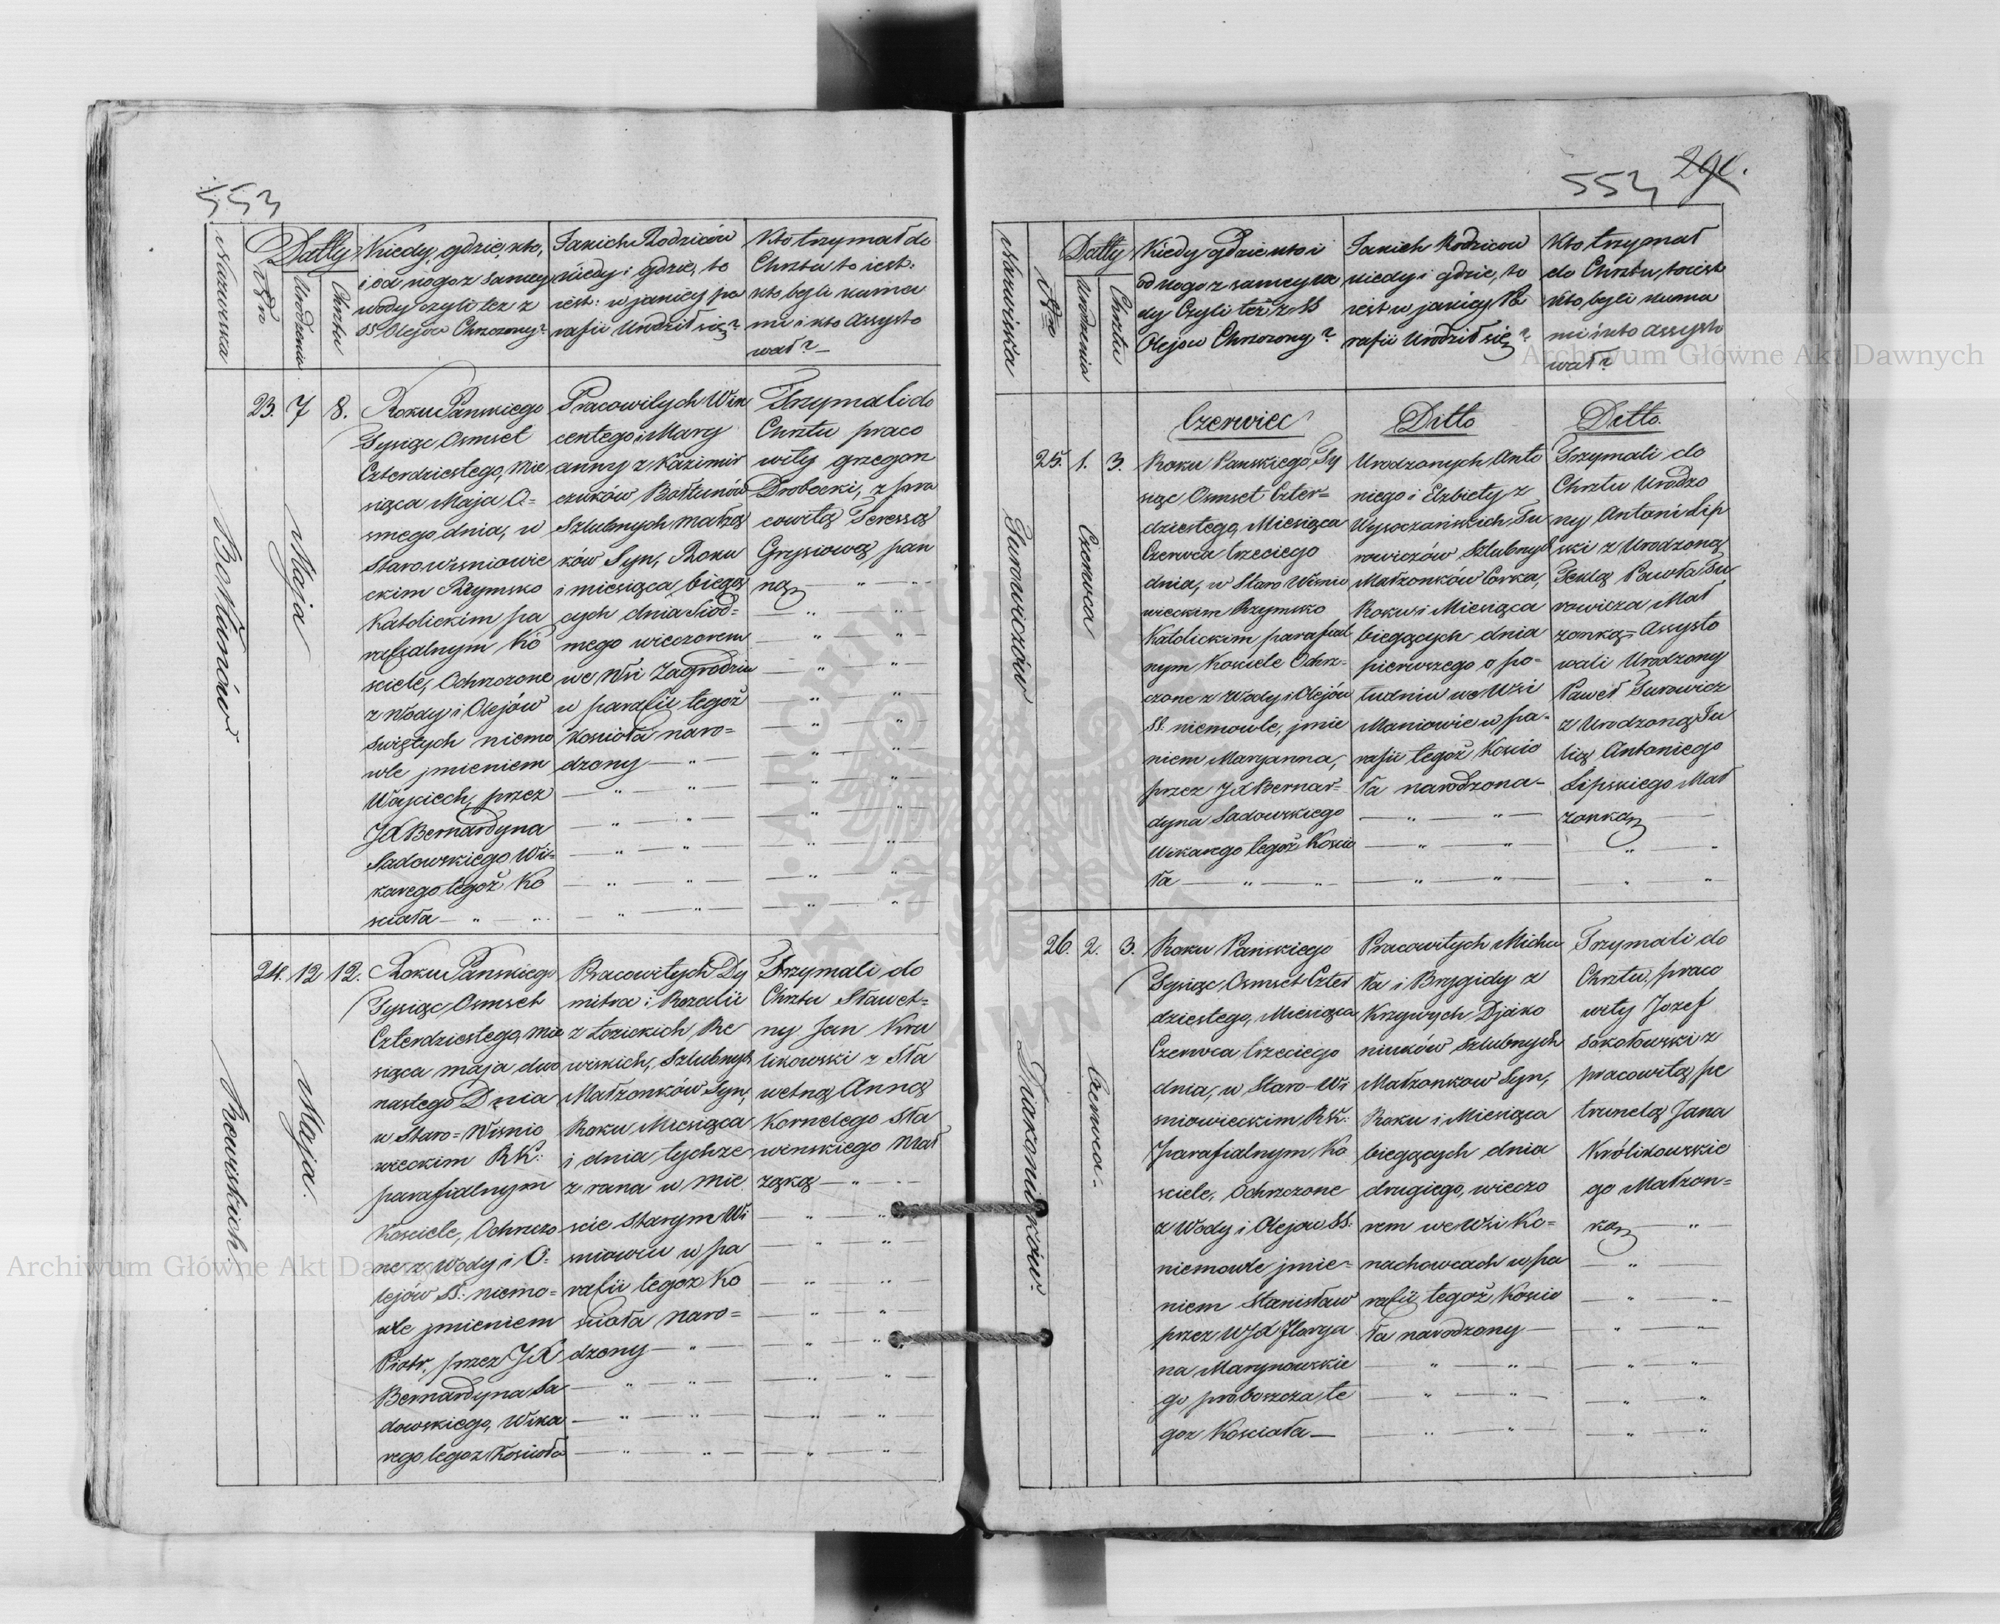 553
Nazwiska
Nro
Datty
Urodzenia
Chrztu
Kiedy, gdzie, kto,
i od kogo z samey
wody czyli też z
SS. Olejów Chrzczony?
Jakich Rodziców
kiedy i gdzie, to
iest: w jakiey pa
rafii Urodził się?
Kto trzymał do
Chrztu to iest:
kto, byli kuma
mi i kto Assysto
wał? —
23. 7 8.
Maja
Bołtunów
Roku Pańskiego
Tysiąc Osmset
Czterdziestego, Mie
siąca Maja O=
smego dnia, w
Starowiśniowie
ckim Rzymsko
Katolickim pa
rafialnym Ko
sciele, Ochrzczone
z Wody i Olejów
Swiętych niemo
wle jmieniem
Wojciech, przez
JX Bernardyna
Sadowskiego Wi=
karego tegoż Ko
scioła —
Pracowitych Win
centego i Mary
anny z Kazimir
czuków Bołtunów
Szlubnych Małżą
ków Syn, Roku
i miesiąca bieżą
cych dnia Siod=
mego wieczorem
we, Wsi Zagrodziu
w parafii tegoż
Kościoła naro=
dzony —
Trzymali do
Chrztu praco
wity grzegorz
Drobocki, z pra
cowitą Teressą
Grysiową pan
ną
24. 12 12.
Maja.
Rewiskich.
Roku Pańskiego
Tysiąc Osmset
Czterdziestego, Mie
siąca maja dwó
nastego Dnia
w Staro=Wiśnio
wieckim RK:
parafialnym
Kosciele, Ochrzczo
ne z Wody i O=
lejów SS: niemo=
wle jmieniem
Piotr, przez JX
Bernardyna Sa
dowskiego, Wika
rego tegoż Kościoła
Pracowitych Dy
mitra i Rozalii
z Łozickich Re
wiskich, Szlubnych
Małżonków Syn,
Roku Miesiąca
i dnia tychże
z rana w Mie
scie Starym Wi
sniowcu w pa
rafii tegoz Ko
scioła naro=
dzony —
Trzymali do
Chrztu Sławet=
ny Jan Kru
likowski z Sła
wetną Anną
Kornelego Sła
winskiego Mał
żąką —
553 291.
Nazwiska
Nro
Datty
Urodzenia
Chrztu
Kiedy gdzie kto i
od kogo z samey wo
dy Czyli też z SS
Olejow Chrzczony?
Jakich Rodzicow
kiedy i gdzie, to
iest w jakiey Pa
rafii Urodził się?
Kto trzymał
do Chrztu, toiest
kto, byli kuma
mi i kto assysto
wał?
Czerwiec Ditto Detto.
25. 1. 3.
Czerwca
Turowiczów
Roku Panskiego, Ty
siąc Osmset Czter=
dziestego, Miesiąca
Czerwca trzeciego
dnia, w Staro Wiśnio
wieckim Rzymsko
Katolickim parafial
nym Kosciele Ochrz=
czone z Wody i Olejów
SS: niemowle, jmie
niem Maryanna,
przez JX Bernar=
dyna Sadowskiego
Wikarego tegoż Koscio
ła —
Urodzonych Anto
niego i Elzbiety z
Wysoczańskich, Tu
rowiczów Szlubnych
Małżonków Corka,
Roku i Miesiąca
biegących dnia
pierwszego o po=
łudniu we Wsi
Maniowie w pa=
rafii tegoż Koscio
ła narodzona —
Trzymali do
Chrztu Urodzo
ny Antoni Lip
ski z Urodzoną
Teklą Pawła Tu
rowicza, Mał
zonką= Assysto
wali Urodzony
Paweł Turowicz
z Urodzoną Ju
lią Antoniego
Lipskiego Mał
zonką
26. 2. 3.
Czerwca.
Diakoniuków.
Roku Pańskiego
Tysiąc, Osmset Czter
dziestego, Miesiąca
Czerwca trzeciego
dnia, w Staro-Wi
sniowieckim RK:
parafialnym, Ko
sciele, Ochrzczone
z Wody i Olejow SS:
niemowle jmie=
niem Stanisław
przez WJX Jlarya
na Marynowskie
go proboszcza te
goz Kosciała —
Pracowitych Micha
ła i Brygidy z
Krzywych Djako
niuków Szlubnych
Małżonkow Syn,
Roku i Miesiąca
biegących dnia
drugiego, wieczo
rem we Wsi Ko=
nachowcach w pa
rafii tegoż Koscio
ła narodzony —
Trzymali do
Chrztu, praco
wity Jozef
Sokołowski z
pracowitą, pe
trunelą Jana
Królikowskie
go Małżon=
ką
Archiwum Główne Akt Dawnych
Archiwum Główne Akt Dawnych